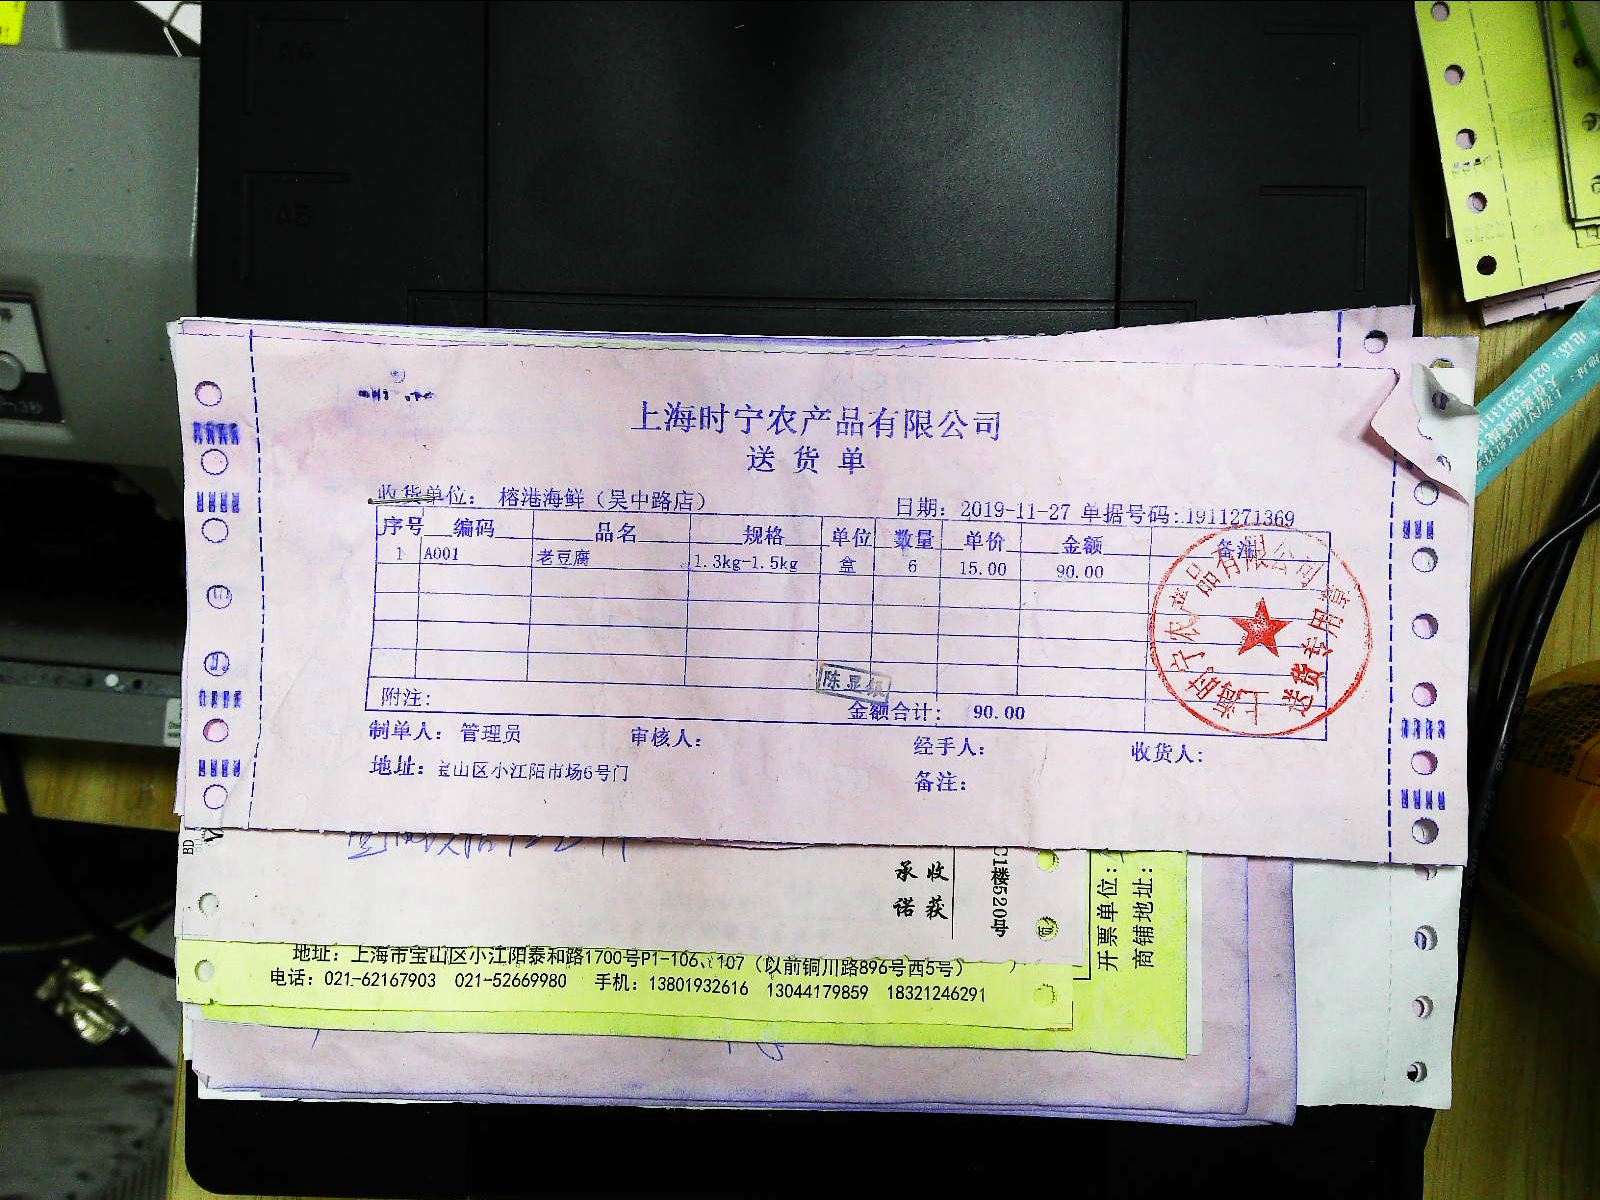 A4
A5
上海时宁农产品有限公司
送 货 单
收货单位： 榕港海鲜（吴中路店） 日期：2019-11-27 单据号码：1911271369
序号 编码 品名 规格 单位 数量 单价 金额 备注
1 A001 老豆腐 1.3kg-1.5kg 盒 6 15.00 90.00
陈显银
附注： 金额合计： 90.00
制单人：管理员 审核人： 经手人： 收货人：
地址：宝山区小江阳市场6号门 备注：
上海时宁农产品有限公司
送货专用章
承诺
收获
C1楼520号
开票单位：
商铺地址：
BD
地址：上海市宝山区小江阳泰和路1700号P1-106、107（以前铜川路896号西5号）
电话：021-62167903 021-52669980 手机：13801932616 13044179859 18321246291